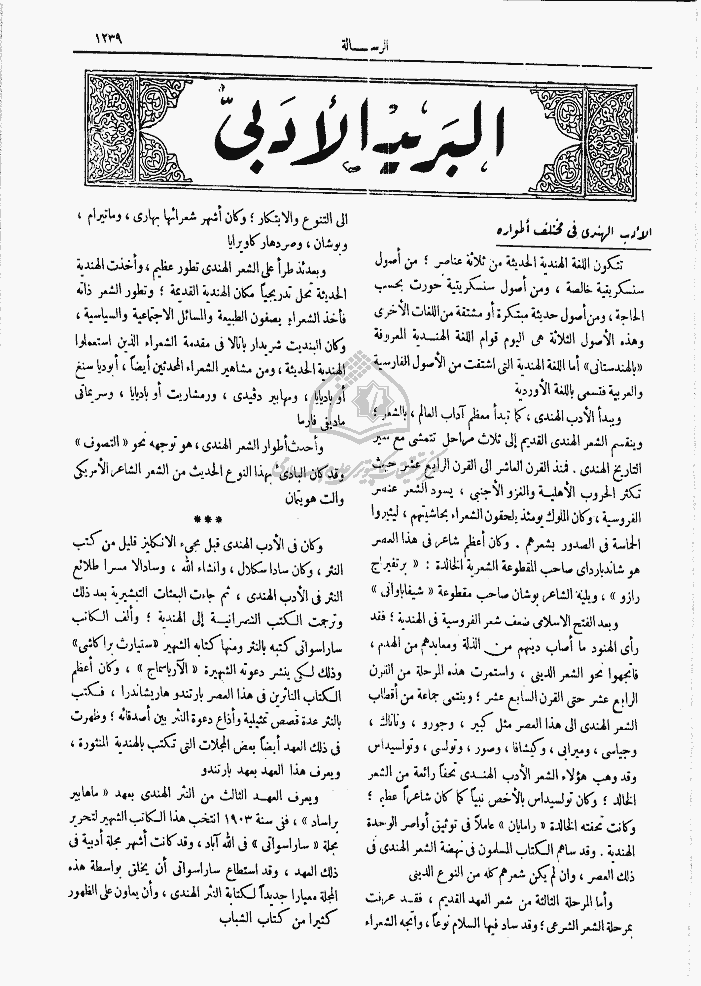 الرسالة
١٢٣٩
البريد الأدبى
الأدب الهندى فى مختلف أطواره
تتكون اللغة الهندية الحديثة من ثلاثة عناصر ؛ من أصول
سنسكريتية خالصة ، ومن أصول سنسكريتية حورت بحسب
الحاجة ، ومن أصول حديثة مبتكرة أو مشتقة من اللغات الأخرى
وهذه الأصول الثلاثة هى اليوم قوام اللغة الهندية المعروفة
«بالهندستانى» أما اللغة الهندية التى اشتقت من الأصول الفارسية
والعربية فتسمى باللغة الأوردية
ويبدأ الأدب الهندى ، كما تبدأ معظم آداب العالم ، بالشعر ؛
وينقسم الشعر الهندى القديم إلى ثلاث مراحل تتمشى مع سير
التاريخ الهندى . فمنذ القرن العاشر الى القرن الرابع عشر حيث
تكثر الحروب الأهلية والغزو الأجنبى ، يسود الشعر عنصر
الفروسية ، وكان الملوك يومئذ يلحقون الشعراء بحاشيتهم ، ليثيروا
الحماسة فى الصدور بشعرهم . وكان أعظم شاعر فى هذا العصر
هو شاندبارداى صاحب المقطوعة الشعرية الخالدة : « برتفيراج
رازو » ، ويليه الشاعر بوشان صاحب مقطوعة « شيفاباوانى »
وبعد الفتح الاسلامى ضعف شعر الفروسية فى الهندية ؛ فقد
رأى الهنود ما أصاب دينهم من الذلة ومعابدهم من الهدم ،
فاتجهوا نحو الشعر الدينى ، واستمرت هذه المرحلة من القرن
الرابع عشر حتى القرن السابع عشر ؛ وينتمى جماعة من أقطاب
الشعر الهندى الى هذا العصر مثل كبير ، وجورو ، وناناك ،
وجياسى ، وميرابى ، وكيشافا ، وصور ، وتولسى ، وتولسيداس
وقد وهب هؤلاء الشعر الأدب الهندى تحفاً رائعة من الشعر
الخالد ؛ وكان تولسيداس بالأخص نبياً كما كان شاعراً عظيما ؛
وكانت تحفته الخالدة « رامايان » عاملاً فى توثيق أواصر الوحدة
الهندية . وقد ساهم الكتاب المسلمون فى نهضة الشعر الهندى فى
ذلك العصر ، وان لم يكن شعرهم كله من النوع الدينى
وأما المرحلة الثالثة من شعر العهد القديم ، فقد عرفت
بمرحلة الشعر الشرعى ؛ وقد ساد فيها السلام نوعاً ، واتجه الشعراء
الى التنوع والابتكار ؛ وكان أشهر شعرائها بهارى ، وماتيرام ،
وبوشان ، وصردهار كاويرايا
وبعدئذ طرأ على الشعر الهندى تطور عظيم ، وأخذت الهندية
الحديثة تحل تدريجياً مكان الهندية القديمة ؛ وتطور الشعر ذاته
فأخذ الشعراء يصفون الطبيعة والمسائل الاجتماعية والسياسية ،
وكان البنديت شريدار باتالا فى مقدمة الشعراء الذين استعملوا
الهندية الحديثة ، ومن مشاهير الشعراء المحدثين أيضاً ، أبوديا سنغ
أو بادبايا ، ومهابير دفيدى ، ورمشاريت أو بادبايا ، وسريماتى
ماديفى فارما
وأحدث أطوار الشعر الهندى ، هو توجهه نحو « التصوف »
وقد كان البادئ بهذا النوع الحديث من الشعر الشاعر الأمريكى
والت هويتمان
***
وكان فى الأدب الهندى قبل مجىء الانكليز قليل من كتب
النثر ، وكان سادا سكلال ، وانشاء الله ، وسادالا مسرا طلائع
النثر فى الأدب الهندى ، ثم جاءت البعثات التبشيرية بعد ذلك
وترجمت الكتب النصرانية إلى الهندية ؛ وألف الكاتب
ساراسواتى كتبه بالنثر ومنها كتابه الشهير «ستيارث براكاشى»
وذلك لكى ينشر دعوته الشهيرة « الآرياسماج » ، وكان أعظم
الكتاب الناثرين فى هذا العصر بارتندو هاريشاندرا ، فكتب
بالنثر عدة قصص تمثيلية وأذاع دعوة النثر بين أصدقائه ؛ وظهرت
فى ذلك العهد أيضاً بعض المجلات التى تكتب بالهندية المنثورة ،
ويعرف هذا العهد بعهد بارتندو
ويعرف العهد الثالث من النثر الهندى بعهد « ماهابير
براساد » ، ففى سنة ١٩٠٣ انتخب هذا الكاتب الشهير لتحرير
مجلة « ساراسواتى » فى الله آباد ، وقد كانت أشهر مجلة أدبية فى
ذلك العهد ، وقد استطاع ساراسواتى أن يخلق بواسطة هذه
المجلة معيارا جديداً لكتابة النثر الهندى ، وأن يعاون على الظهور
كثيرا من كتاب الشباب